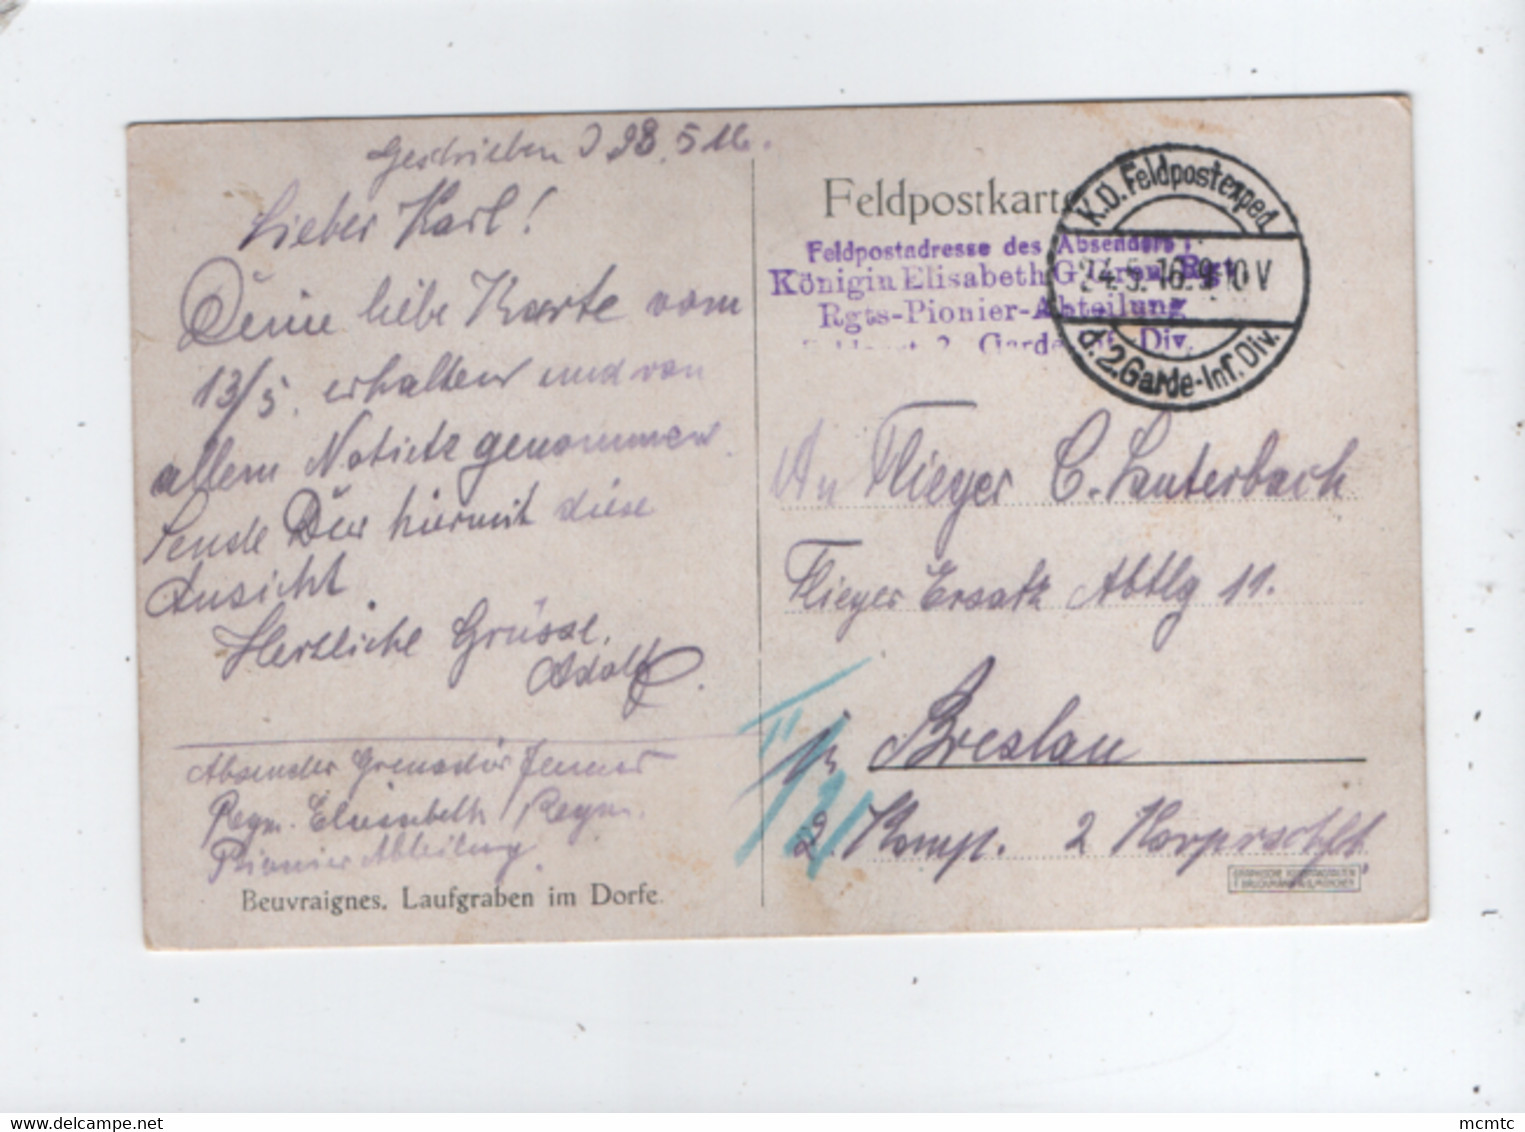 Geschrieben d 23.5.16.
Lieber Karl!
Deine liebe Karte vom
13/5. erhalten und von
allem Notietz genommen.
Sende Dir hiermit diese
Ansicht.
Herzliche Grüsse.
Adolf.
Absender Grenadir
Regm. Elisabeth Regm.
Pionier Abteilung
Beuvraignes. Laufgraben im Dorfe.
Feldpostkarte
Feldpostadresse des Absenders:
Königin Elisabeth G. Gren. Rgt.
Rgts-Pionier-Abteilung
2. Garde Inf. Div.
K.D. Feldpostexped.
24.5.16.9-10V
d.2.Garde-Inf.Div.
An Flieger C. Lauterbach
Flieger Ersatz Abtlg 11.
in Breslau
2. Komp. 2 Korprschft.
mcmtc